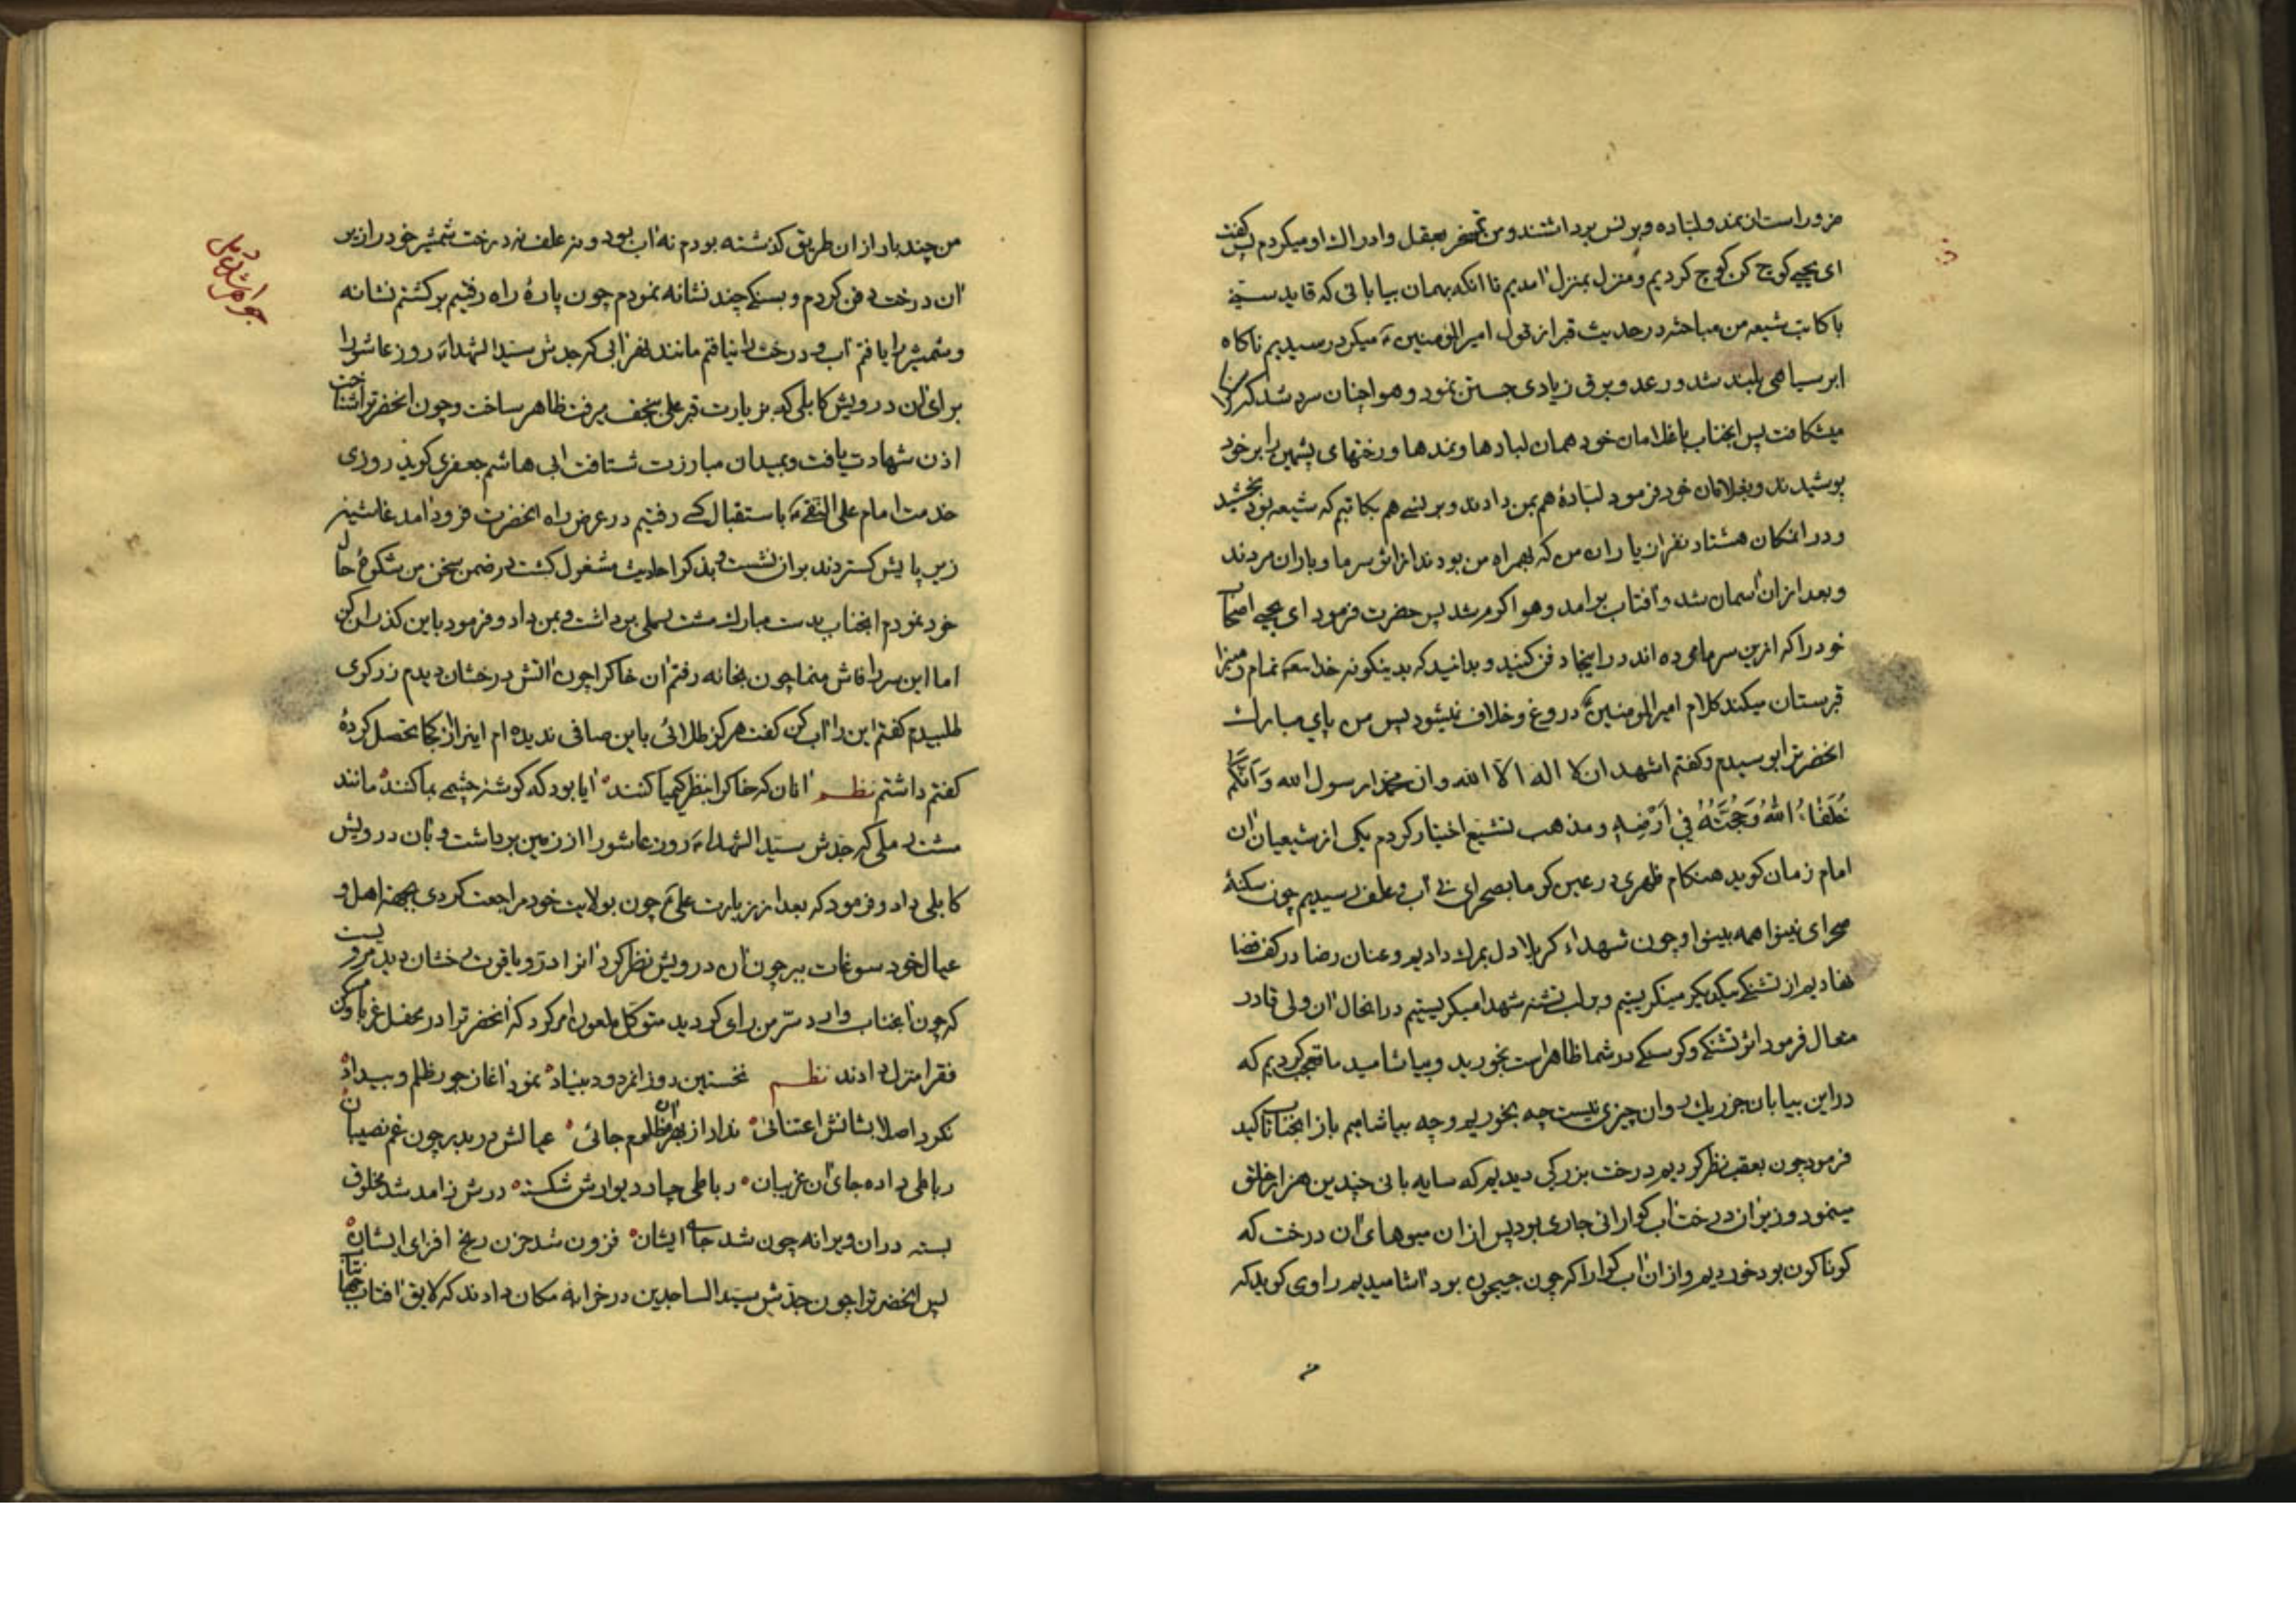 ضرور است از نمد و لباده و برنس برداشتند و من تمسخر بعقل و ادراك او میکردم پس گفت
ای یحیی کوچ کن کوچ کردیم و منزل بمنزل امدیم تا انکه بهمان بیابانی که قاید سنی
با کاتب شیعه من مباحثه در حدیث قبر از قول امیرالمومنین ع میکرد رسیدیم ناکاه
ابر سیاهی بلند شد و رعد و برق زیادی جستن نمود و هوا چنان سرد شد که
میشکافت پس انجناب با غلامان خود همان لبادها و نمدها و رختهای پشمین را بر خود
پوشیدند و بغلامان خود فرمود لبادهٔ هم بمن دادند و برنسی هم بکاتبم که شیعه بود بخشید
و در انمکان هشتاد نفر از یاران من که بهمراه من بودند از اثر سرما و باران مردند
و بعد از ان اسمان شد و افتاب برامد و هوا کرم شد پس حضرت فرمود ای یحیی اصحاب
خود را که ازین سرما مرده اند در اینجا دفن کنید و بدانید که بدینکونه خدا تمام زمین را
قبرستان میکند کلام امیرالمومنین ع دروغ و خلاف نمیشود پس من پای مبارك
انحضرترا بوسیدم و کفتم اشهد ان لا اله الا الله و ان محمدا رسول الله وَ اَنَّکُم
خُلَفَاءُ اللهِ وَ حُجَّتُهُ فِي اَرْضِهِ و مذهب تشیع اختیار کردم یکی از شیعیان ان
امام زمان کوید هنکام ظهری در عین کرما بصحرای بی اب و علف رسیدیم چون سکنهٔ
صحرای نینوا همه بینوا و چون شهداء کربلا دل بمرك دادیم و عنان رضا در کف قضا
نهادیم از تشنکی بیکدیکر مینکریستیم و بر لب تشنه شهدا میکریستیم در انحال ان ولی قادر
متعال فرمود اثر تشنکی و کرسنکی در شما ظاهر است بخورید و بیاشامید ما تعجب کردیم که
در این بیابان جز ریك روان چیزی نیست چه بخوریم و چه بیاشامیم باز انجناب تاکید
فرمود چون بعقب نظر کردیم درخت بزرکی دیدیم که سایه بانی چندین هزار خلق
مینمود و زیر ان درخت اب کوارانی جاری بود پس از ان میوهای ان درخت که
کوناکون بود خوردیم و از ان اب کوارا که چون جیحون بود اشامیدیم راوی کوید که
من چند بار از ان طریق کذشته بودم نه اب بود و نه علف نه درخت شمشیر خود را زیر
ان درخت دفن کردم و بسنکی چند نشانه نمودم چون پارهٔ راه رفتیم برکشتم نشانه
و شمشیر را یافتم اب و درخت را نیافتم مانند نهر ابی که جدش سید الشهداء ع روز عاشورا
برای ان درویش کابلی که بزیارت قبر علی بنجف میرفت ظاهر ساخت و چون انحضرترا شناخت
اذن شهادت یافت و بمیدان مبارزت شتافت ابی هاشم جعفری کوید روزی
خدمت امام علی النقی ع باستقبال کسی رفتیم در عرض راه انحضرت فرود امد غاشیه
زیر پایش کستردند بر ان نشست و بذکر احادیث مشغول کشت در ضمن سخن من شکوهٔ حال
خود نمودم انجناب بدست مبارك مشت رملی برداشت و بمن داد و فرمود باین کذران کن
اما این سر را فاش منما چون بخانه رفتم ان خاکرا چون اتش درخشان دیدم زرکری
طلبیدم کفتم این را اب کن کفت هرکز طلائی باین صافی ندیده ام اینرا از کجا تحصیل کردهٔ
کفتم داشتم نظم انان که خاکرا بنظر کیمیا کنند ایا بود که کوشه چشمی بما کنند مانند
مشت رملی که جدش سید الشهداء ع روز عاشورا از زمین برداشت و بان درویش
کابلی داد و فرمود که بعد از زیارت علی ع چون بولایت خود مراجعت کردی بجهة اهل و
عیال خود سوغات ببر چون ان درویش نظر کرد انرا در و یاقوت رخشان دید مرویست
که چون انجناب وارد سر من رای کردید متوکل ملعون امر کرد که انحضرترا در محفل غربا و
فقرا منزل دادند نظم نخستین روز انمردود بنیاد نمود اغاز جور و ظلم و بیداد
نکرد اصلا بشانش اعتنائی نداد از بهر ان مظلوم جائی عیالش دربدر چون غم نصیبان
رباطی داده جای ان غریبان رباطی چارد دیوارش شکسته درش ز امد شد مخلوق
بسته در ان ویرانه چون شد جای ایشان فزون شد حزن رنج افزای ایشان
پس انحضرترا چون جدش سید الساجدین در خرابه مکان دادند که لایق افتاب